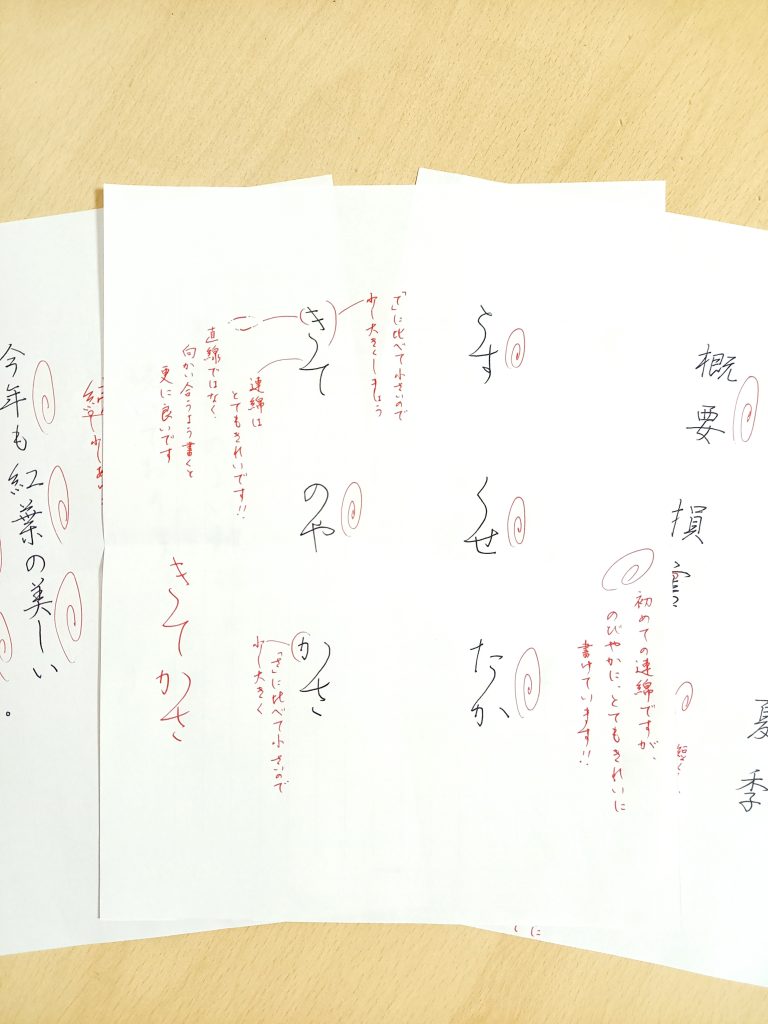 概要
損
夏季
短く
初めての連綿ですが、
のびやかに、とてもきれいに
書けています!!
うす
くせ
なか
「て」に比べて小さいので
少し大きくしましょう
きって
のや
かさ
連綿は
とてもきれいです!!
直線ではなく
向かい合うよう書くと
更に良いです
「さ」に比べて小さいので
少し大きく
きって かさ
今年も紅葉の美しい
。